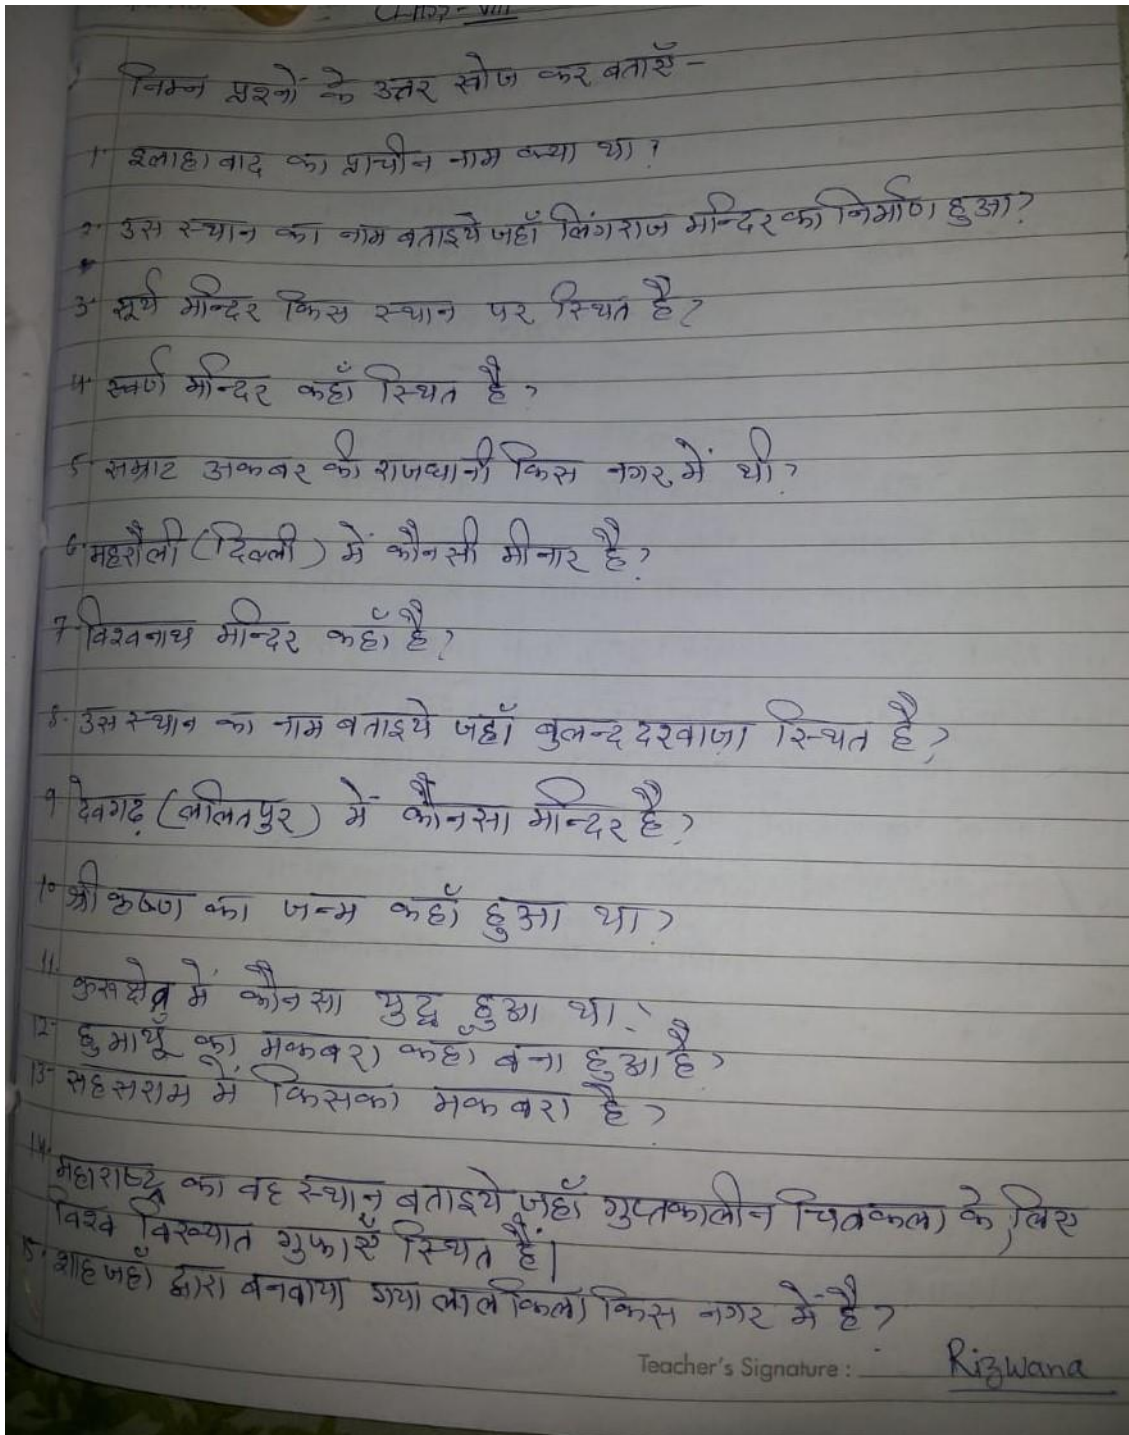 Class - VIII
निम्न प्रश्नों के उत्तर खोज कर बताएँ -
1. इलाहाबाद का प्राचीन नाम क्या था ?
2. उस स्थान का नाम बताइये जहाँ लिंगराज मन्दिर का निर्माण हुआ ?
3. सूर्य मन्दिर किस स्थान पर स्थित है ?
4. स्वर्ण मन्दिर कहाँ स्थित है ?
5. सम्राट अकबर की राजधानी किस नगर में थी ?
6. महरौली (दिल्ली) में कौन सी मीनार है ?
7. विश्वनाथ मन्दिर कहाँ है ?
8. उस स्थान का नाम बताइये जहाँ बुलन्द दरवाज़ा स्थित है ?
9 देवगढ़ (ललितपुर) में कौन सा मन्दिर है ?
10 श्री कृष्ण का जन्म कहाँ हुआ था ?
11. कुरुक्षेत्र में कौन सा युद्ध हुआ था ?
12- हुमायूँ का मकबरा कहाँ बना हुआ है ?
13- सहसराम में किसका मकबरा है ?
14. महाराष्ट्र का वह स्थान बताइये जहाँ गुप्तकालीन चित्रकला के लिए
विश्व विख्यात गुफाएँ स्थित हैं।
15. शाहजहाँ द्वारा बनवाया गया लाल किला किस नगर में है ?
Teacher's Signature : Rizwana